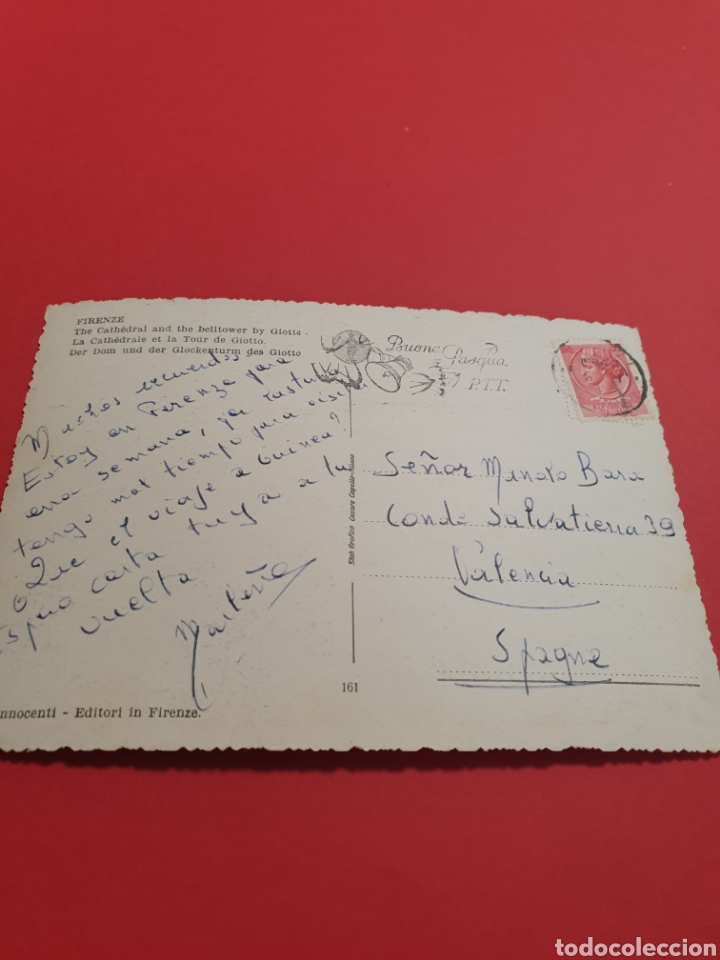 FIRENZE
The Cathédral and the belltower by Giotto.
La Cathédrale et la Tour de Giotto.
Der Dom und der Glockenturm des Giotto
Muchos recuerdos
Estoy en Firenze para
una semana, ya
tengo mal tiempo para
Que el viaje a Guinea?
carta tuya a tu
vuelta
Buona Pasqua
P.T.T.
Señor Manolo Bara
Conde Salvatierra 39
Valencia
Spagne
161
nnocenti - Editori in Firenze.
todocoleccion